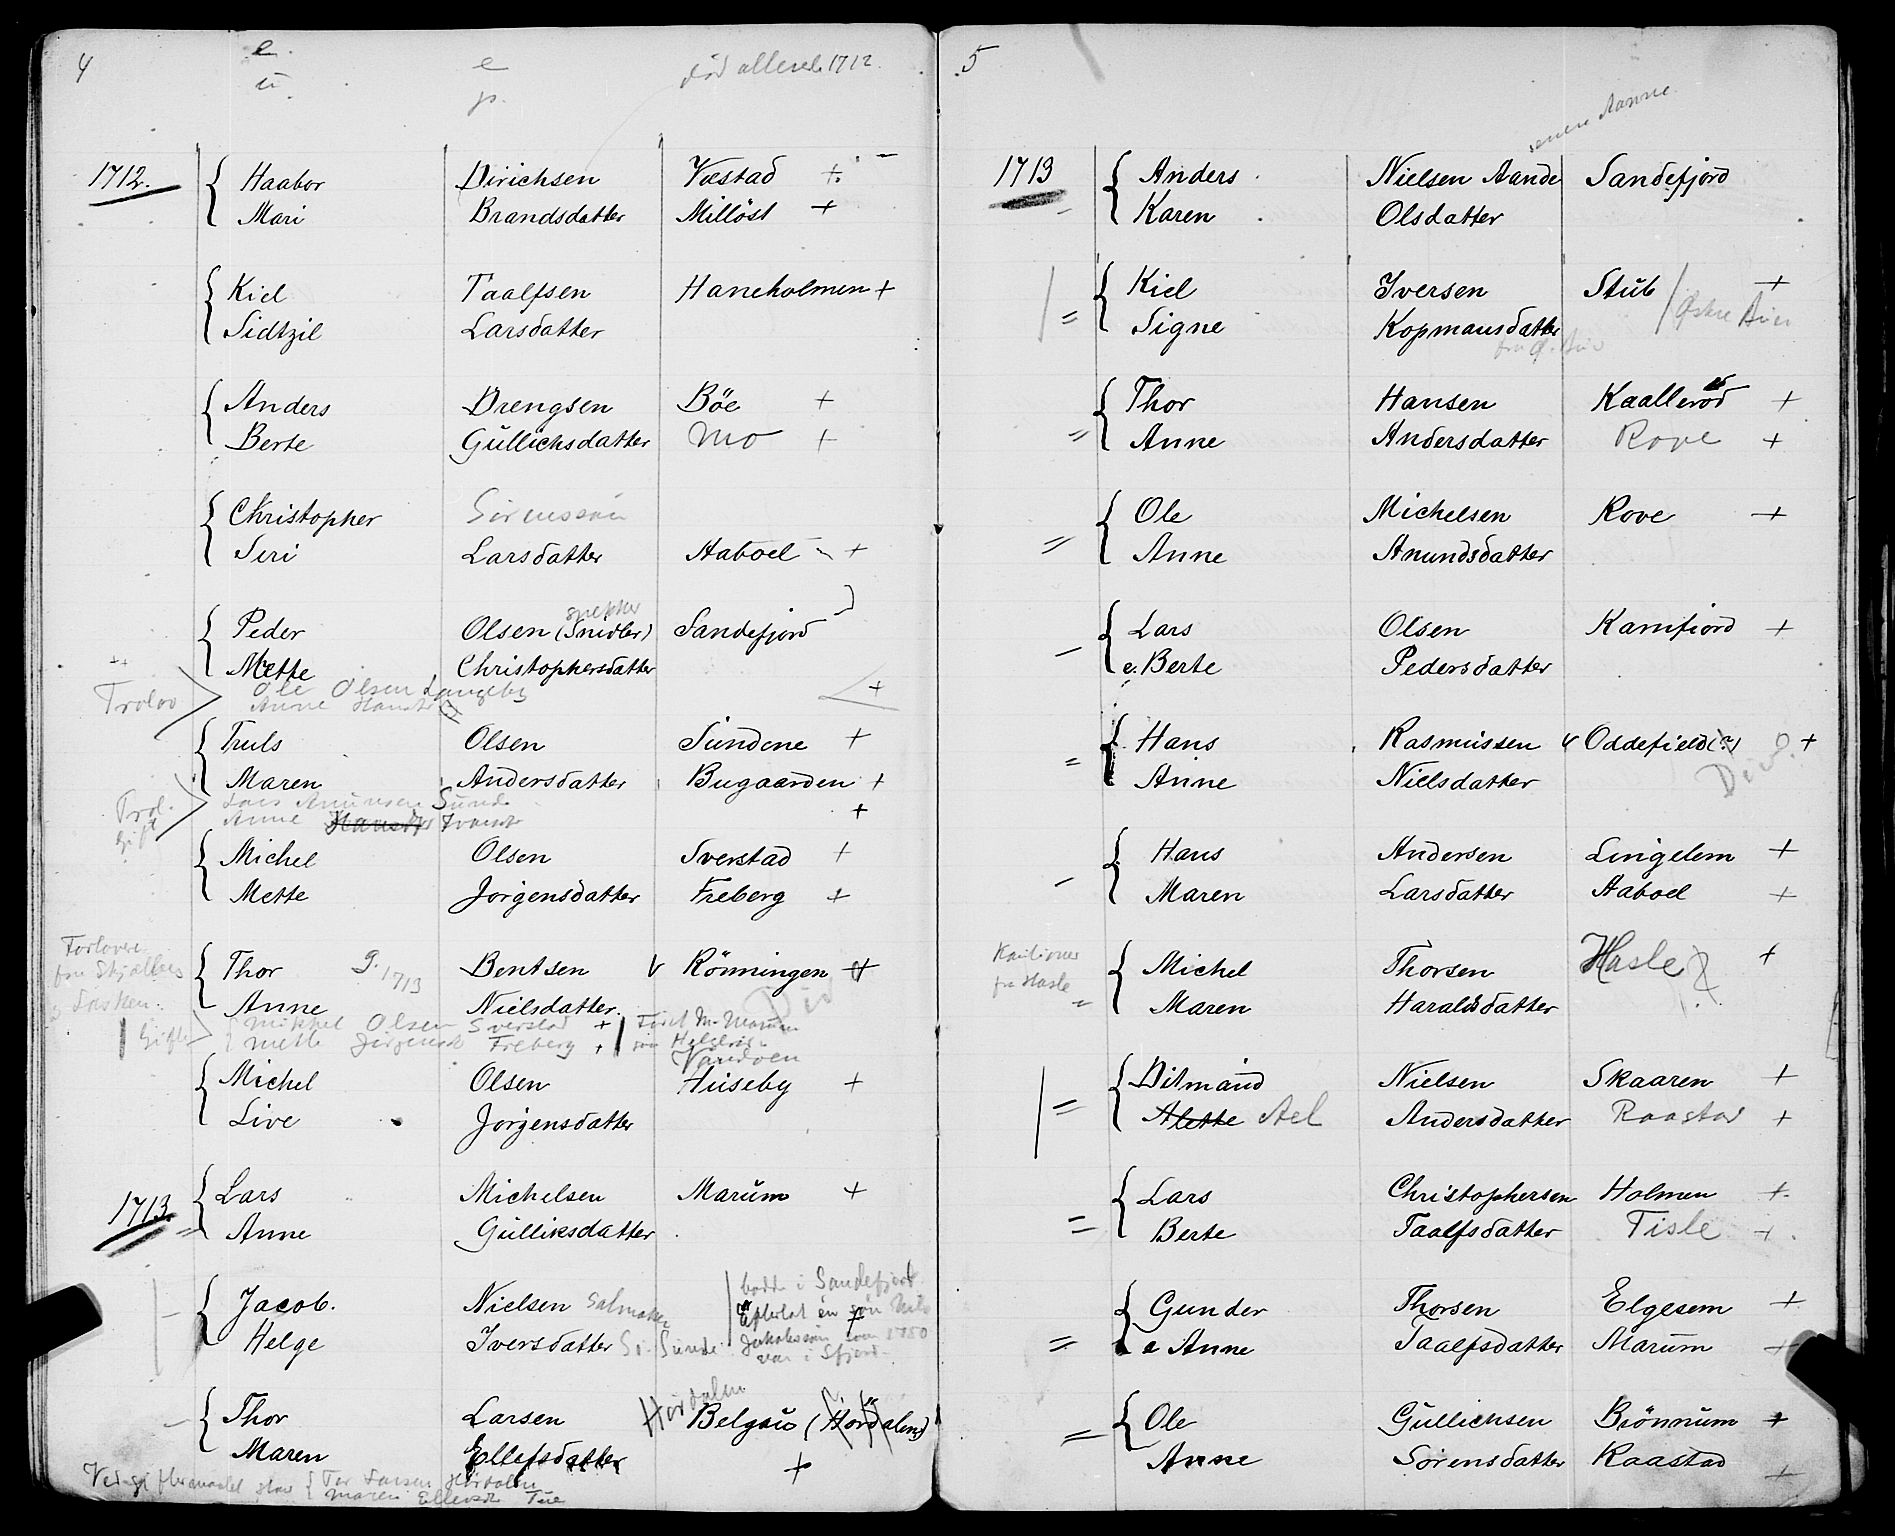 4
e
e
død allerede 1712
ü
p.
1712. Haabor Dirichsen Væstad +
Mari Brandsdatter Millöst +
Kiel Taalfsen Haneholmen +
Sidtzil Larsdatter
Anders Drengsen Böe +
Berte Güllichsdatter Mo +
Christopher Sörenssön
Siri Larsdatter Aaboel +
Peder Olsen (Snidler) Sandefjord
Mette Christophersdatter
Trolov Ole Olsen Langeby +
Anne
Truls Olsen Sündene +
Maren Andersdatter Bugaarden +
Trol. Lars Amundsen Sunde
Gift Anne Hansdtr +
Michel Olsen Sverstad +
Mette Jörgensdatter Freberg +
Forlovere
fra
Thor g. 1713 Bentsen v Rönningen +
Anne Nielsdatter
Gifte Mikkel Olsen Sverstad +
Mette Jörgensdt Freberg +
Michel Olsen Hüseby +
Live Jörgensdatter
1713 Lars Michelsen Marüm +
= Anne Gulliksdatter
bodde i Sandefjord
Jacob. Nielsen Salmaker Efterlot én søn Nils
Helge Iversdatter S. Sunde Jakobssøn som
var i Sfjord
Hördalen
Thor Larsen Belgaü (Hordalen)
Maren Ellefsdatter +
Tor Larsen Hördalen
Maren Ellefsdt
5
senere Aanne
1713 Anders Nielsen Aande Sandefjord
- Karen Olsdatter
Kiel Iversen Stüb +
= Signe Kopmansdatter Østre
fra Ø.
Thor Hansen Kaalleröd +
= Anne Andersdatter Rove +
Ole Michelsen Rove +
= Anne Anundsdatter
Lars Olsen Kamfiord +
- e. Berte Pedersdatter
Hans Rasmüssen v Oddefield (?) +
= Anne Nielsdatter
Hans Andersen Lingelem +
- Maren Larsdatter Aaboel +
Kautioner
fra Hasle
Michel Thorsen Hasle ? +
= Maren Haraldsdatter
Ditmand Nielsen Skaaren +
= Alette Ael Andersdatter Raastad +
Lars Christophersen Holmen +
= Berte Taalfsdatter Fisle +
Gunder Thorsen Elgesem +
= e Anne Taalfsdatter Marüm +
Ole Güllichsen Biönnüm +
= Anne Sörensdatter Raastad +